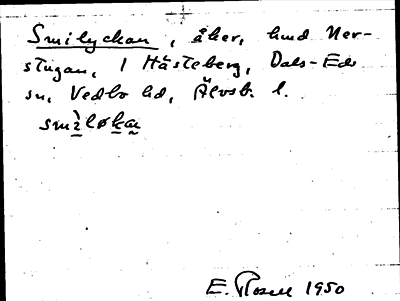 Smilyckan, åker, hmd Ner-
stugan, 1 Hästeberg, Dals-Eds
sn, Vedbo hd, Älvsb. l.
smìløkan
E. Rosell 1950